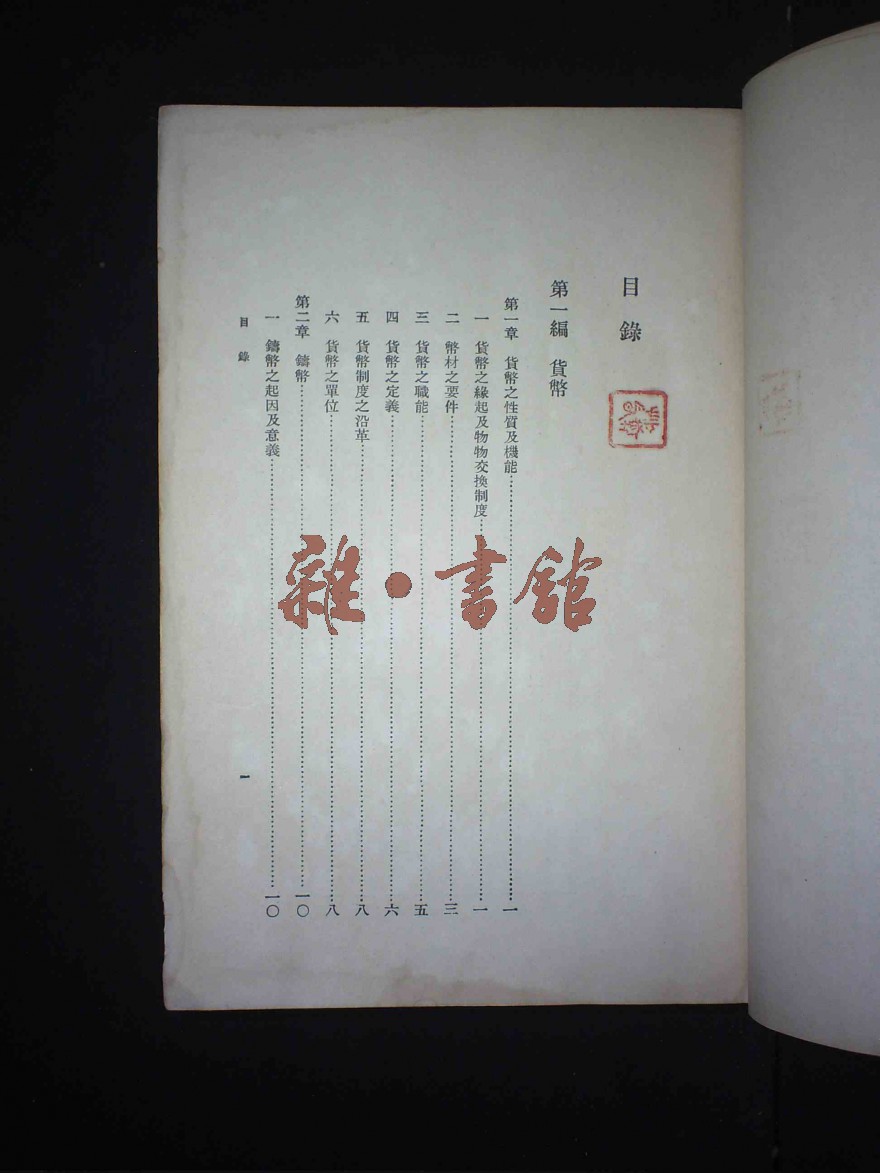 目錄
第一編　貨幣
第一章　貨幣之性質及機能……一
一　貨幣之緣起及物物交換制度……一
二　幣材之要件……三
三　貨幣之職能……五
四　貨幣之定義……六
五　貨幣制度之沿革……八
六　貨幣之單位……八
第二章　鑄幣……一〇
一　鑄幣之起因及意義……一〇
目錄
一
雜・書館